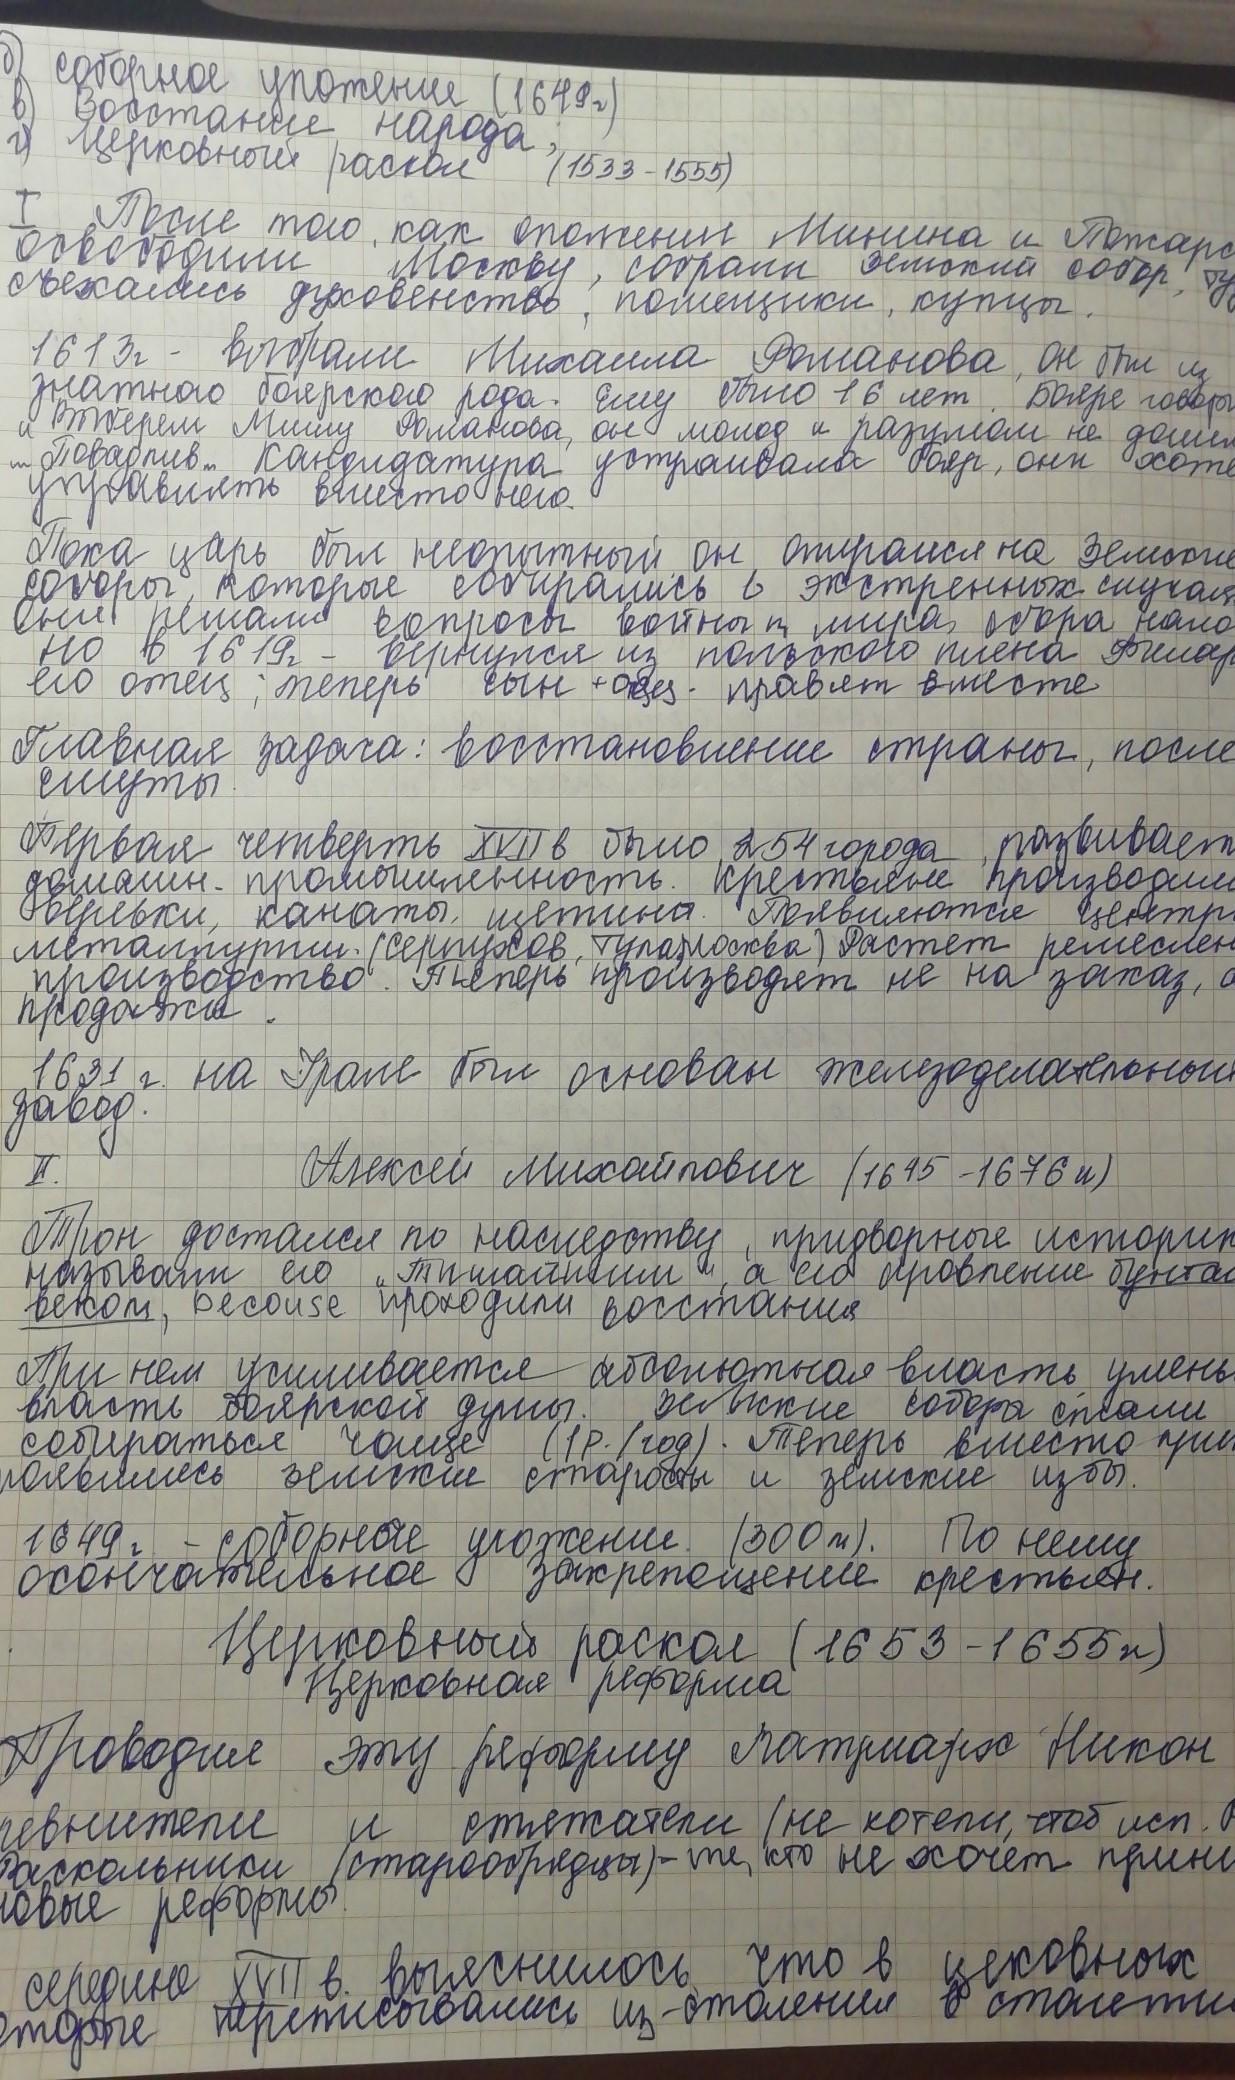 б) соборное уложение (1649г)
в) Восстание народа;
г) Церковный раскол (1533-1555)
I После того, как ополчения Минина и Пожарс
освободили Москву, собрали земский собор, ту
съехались духовенство, помещики, купцы.
1613г - выбрали Михаила Романова, он был из
знатного боярского рода. Ему было 16 лет. Бояре говори
„ Выберем Мишу Романова, он молод и разумом не дошел
Кандидатура устраивала бояр, они хоте
управлять вместо него.
Пока царь был неопытный, он опирался на Земские
соборы, которые собирались в экстренных случая
Они решали вопросы войны и мира, сбора нало
но в 1619г - вернулся из польского плена Филар
его отец; теперь сын + отец - правят вместе
Главная задача: восстановление страны, после
смуты.
Первая четверть XVII в было 254 города, развивает
домашн. промышленность. Крестьяне производили
верёвки, канаты, щетина. Появляются центры
металлургии. (Серпухов, Тула, Москва) Растет ремеслен
производство. Теперь производят не на заказ, а
продажи.
1631 г. на Урале был основан железоделательный
завод.
II. Алексей Михайлович (1645-1676гг)
Трон достался по наследству, придворные историк
называли его „Тишайшим", а его провление бунта
веком, becouse проходили восстания
При нем усиливается абсолютная власть, умень
власть боярской думы. Земские собора стали
собираться чаще (1р./год). Теперь вместо при
появились земские старосты и земские избы.
1649г - соборное уложение. (300л). По нему
окончательное закрепощение крестьян.
Церковный раскол (1653-1655г)
Церковная реформа
Проводил эту реформу Патриарх Никон
ревнители и стяжатели (не хотели, чтоб исп.
Раскольники (старообрядцы) - те, кто не хочет прини
новые реформы.
середине XVII в. выяснилось что в цековных
которые переписовались из-столения в столети